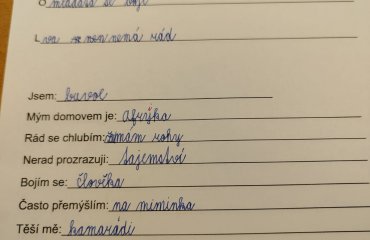 O mláďata se bojí
L va nemá rád
Jsem: buvol
Mým domovem je: Afryka
Rád se chlubím: mám rohy
Nerad prozrazuji: tajemství
Bojím se: člověka
Často přemýšlím: na miminka
Těší mě: kamarádi